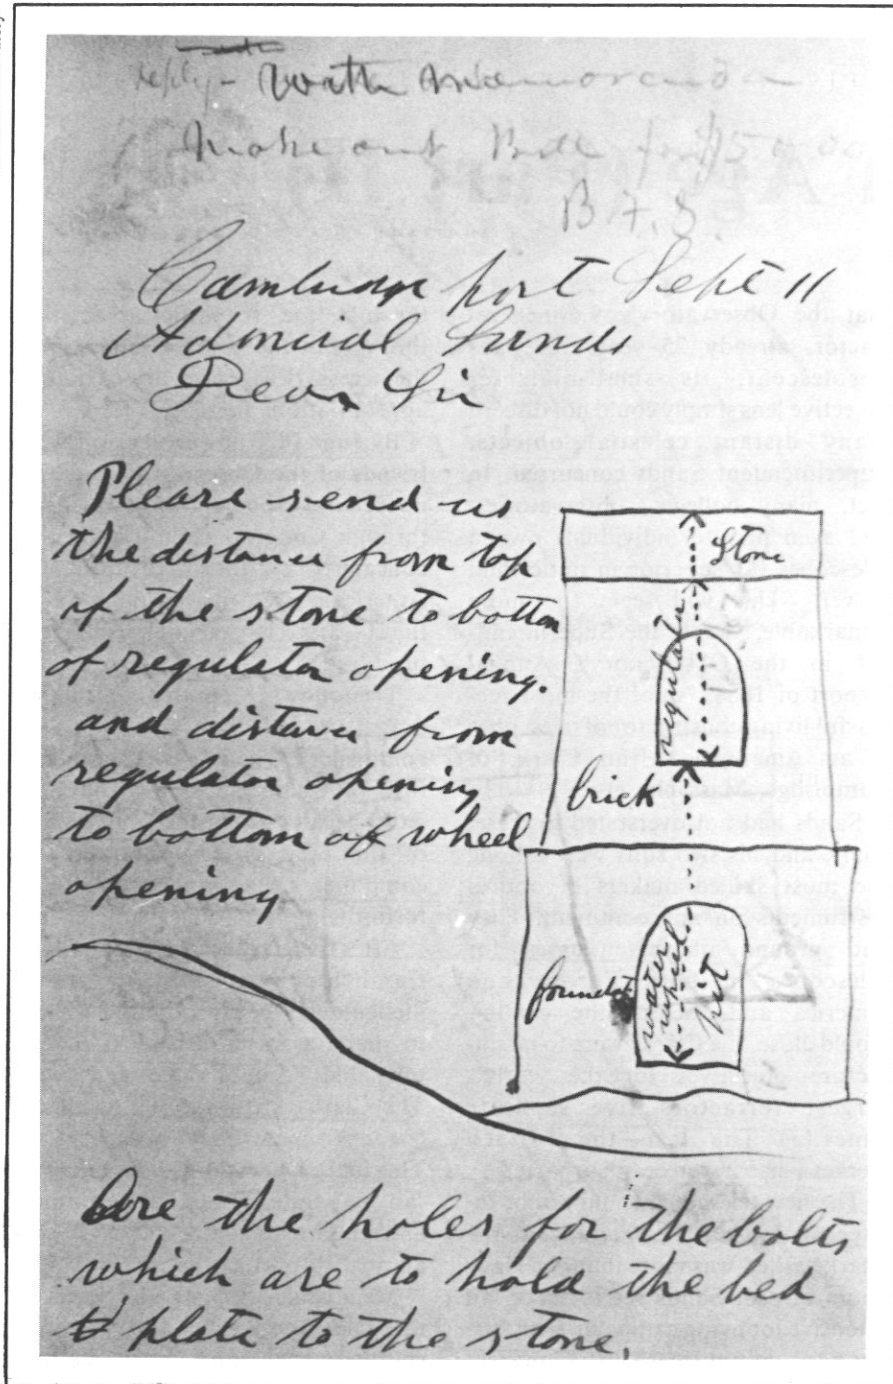 reply -
Make out Bill for $5000
B F S
Cambridge port Sept 11
Admiral Sands
Dear Sir
Please send us
the distance from top
of the stone to bottom
of regulator opening.
and distance from
regulator opening
to bottom of wheel
opening
Stone
regulator
brick
foundat
water
wheel
pit
Are the holes for the bolts
which are to hold the bed
plate to the stone,